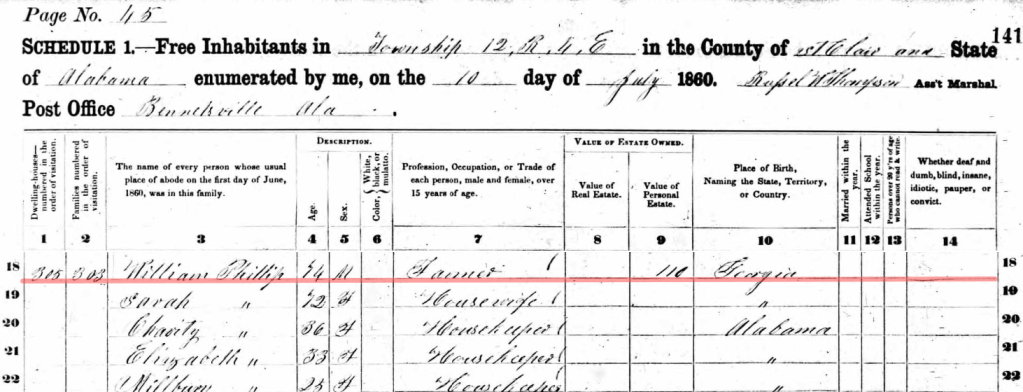 Page No. 45
141
SCHEDULE 1.—Free Inhabitants in Township 12, R 4, E in the County of St Clair and State
of Alabama enumerated by me, on the 10 day of July 1860. Ass't Marshal.
Post Office Bennettsville Ala.
DESCRIPTION. VALUE OF ESTATE OWNED.
Dwelling-houses—numbered in the order of visitation.
Families numbered in the order of visitation.
The name of every person whose usual place of abode on the first day of June, 1860, was in this family.
Age.
Sex.
Color, White, black, or mulatto.
Profession, Occupation, or Trade of each person, male and female, over 15 years of age.
Value of Real Estate.
Value of Personal Estate.
Place of Birth, Naming the State, Territory, or Country.
Married within the year.
Attended School within the year.
Persons over 20 y'rs of age who cannot read & write.
Whether deaf and dumb, blind, insane, idiotic, pauper, or convict.
1 2 3 4 5 6 7 8 9 10 11 12 13 14
18 305 303 William Phillip 74 M Farmer 110 Georgia 18
19 Sarah " 72 F Housewife " 19
20 Charity " 36 F Housekeeper Alabama 20
21 Elizabeth " 33 F Housekeeper " 21
22 F Housekeeper 22